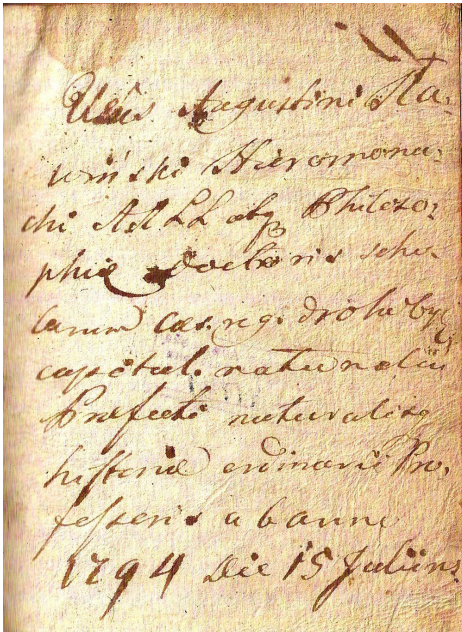 Usus Augustini Ra-
wiński Hieromona-
chi AALL atq Philozo-
phiæ Doctoris scho-
larum cæs. reg. drohoby
capital. naturaliū
Præfecti naturalisq
historiæ ordinarii Pro-
fessoris ab anno
1794 Die 15 Juliī